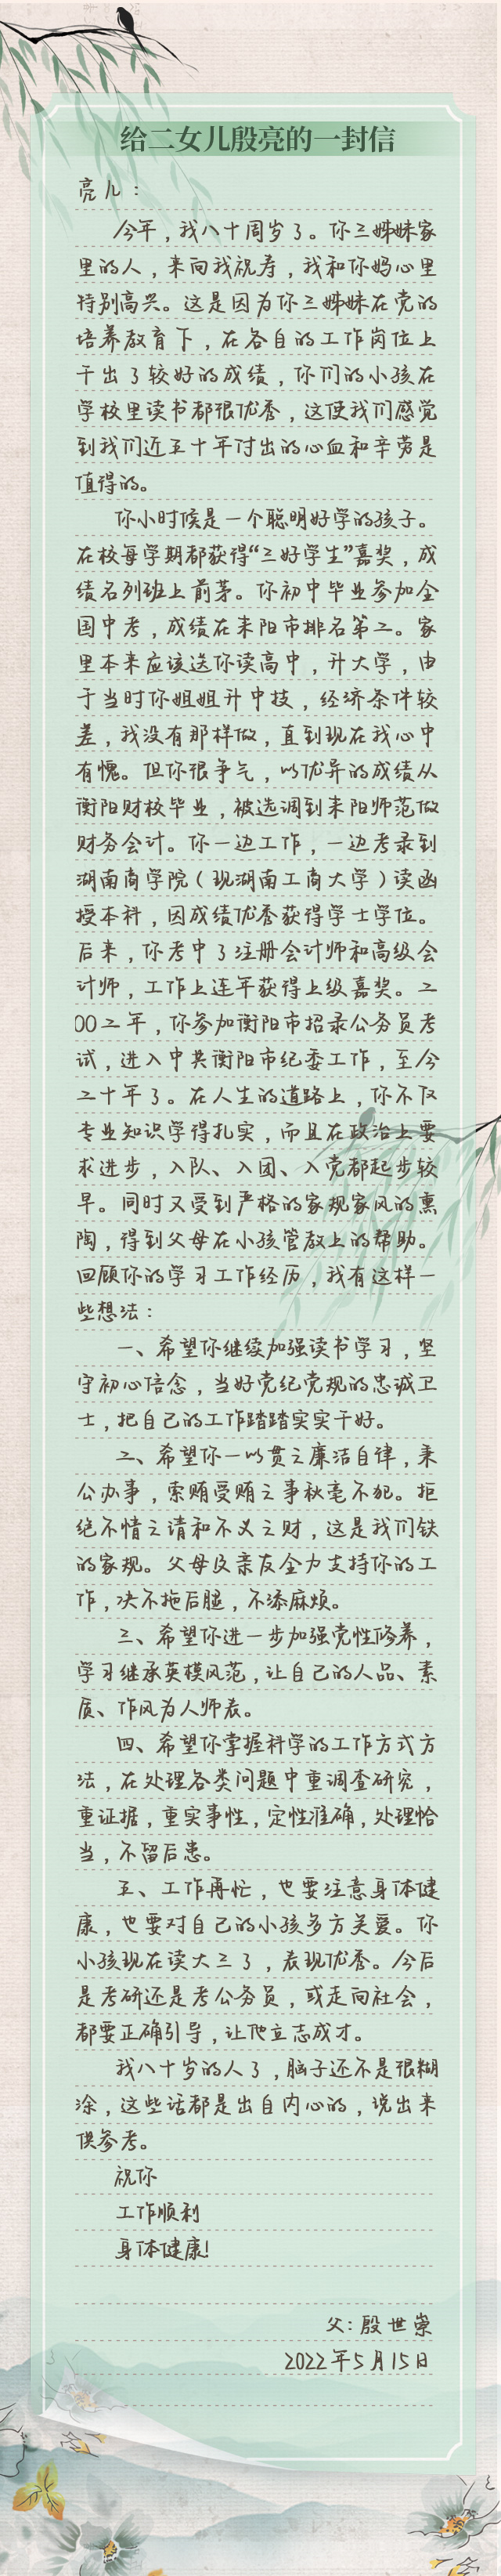 给二女儿殷亮的一封信
亮儿：
今年，我八十周岁了。你三姊妹家
里的人，来向我祝寿，我和你妈心里
特别高兴。这是因为你三姊妹在党的
培养教育下，在各自的工作岗位上
干出了较好的成绩，你们的小孩在
学校里读书都很优秀，这使我们感觉
到我们近五十年付出的心血和辛劳是
值得的。
你小时候是一个聪明好学的孩子。
在校每学期都获得“三好学生”嘉奖，成
绩名列班上前茅。你初中毕业参加全
国中考，成绩在耒阳市排名第二。家
里本来应该送你读高中，升大学，由
于当时你姐姐升中技，经济条件较
差，我没有那样做，直到现在我心中
有愧。但你很争气，以优异的成绩从
衡阳财校毕业，被选调到耒阳师范做
财务会计。你一边工作，一边考录到
湖南商学院（现湖南工商大学）读函
授本科，因成绩优秀获得学士学位。
后来，你考中了注册会计师和高级会
计师，工作上连年获得上级嘉奖。二
00二年，你参加衡阳市招录公务员考
试，进入中共衡阳市纪委工作，至今
二十年了。在人生的道路上，你不仅
专业知识学得扎实，而且在政治上要
求进步，入队、入团、入党都起步较
早。同时又受到严格的家规家风的熏
陶，得到父母在小孩管教上的帮助。
回顾你的学习工作经历，我有这样一
些想法：
一、希望你继续加强读书学习，坚
守初心信念，当好党纪党规的忠诚卫
士，把自己的工作踏踏实实干好。
二、希望你一以贯之廉洁自律，秉
公办事，索贿受贿之事秋毫不犯。拒
绝不情之请和不义之财，这是我们铁
的家规。父母及亲友全力支持你的工
作，决不拖后腿，不添麻烦。
三、希望你进一步加强党性修养，
学习继承英模风范，让自己的人品、素
质、作风为人师表。
四、希望你掌握科学的工作方式方
法，在处理各类问题中重调查研究，
重证据，重实事性，定性准确，处理恰
当，不留后患。
五、工作再忙，也要注意身体健
康，也要对自己的小孩多方关爱。你
小孩现在读大三了，表现优秀。今后
是考研还是考公务员，或走向社会，
都要正确引导，让他立志成才。
我八十岁的人了，脑子还不是很糊
涂，这些话都是出自内心的，说出来
供参考。
祝你
工作顺利
身体健康！
父：殷世崇
2022年5月15日